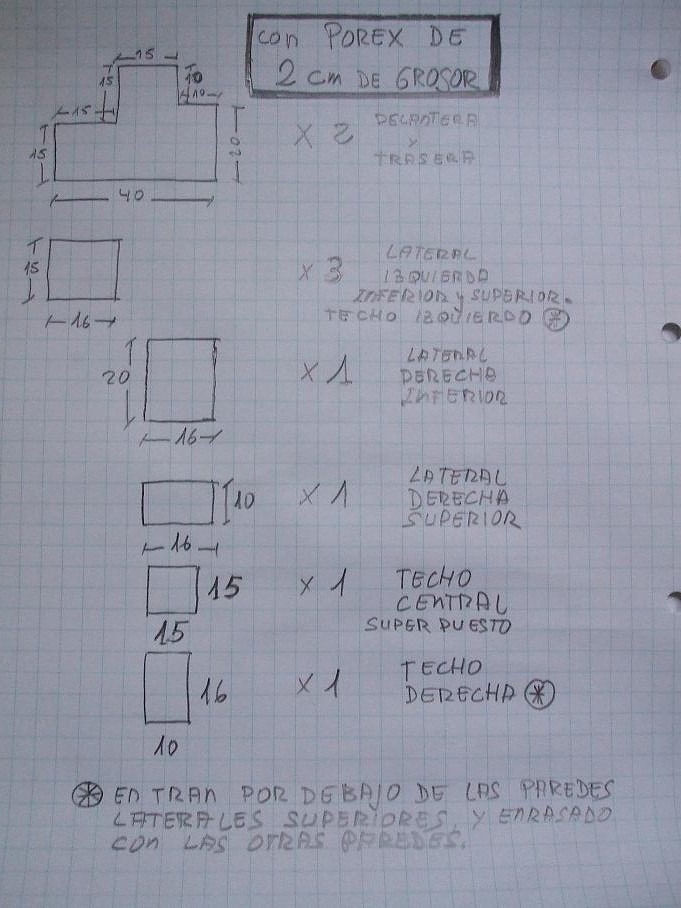 con POREX DE
2 cm DE GROSOR
15
15
10
15
10
15
20
40
x 2 DELANTERA
Y
TRASERA
15
16
x 3 LATERAL
IZQUIERDA
INFERIOR y SUPERIOR.
TECHO IZQUIERDO *
20
16
x 1 LATERAL
DERECHA
INFERIOR
10
16
x 1 LATERAL
DERECHA
SUPERIOR
15
15
x 1 TECHO
CENTRAL
SUPER PUESTO
16
10
x 1 TECHO
DERECHA *
* EN TRAN POR DEBAJO DE LAS PAREDES
LATERALES SUPERIORES, Y ENRASADO
CON LAS OTRAS PAREDES.